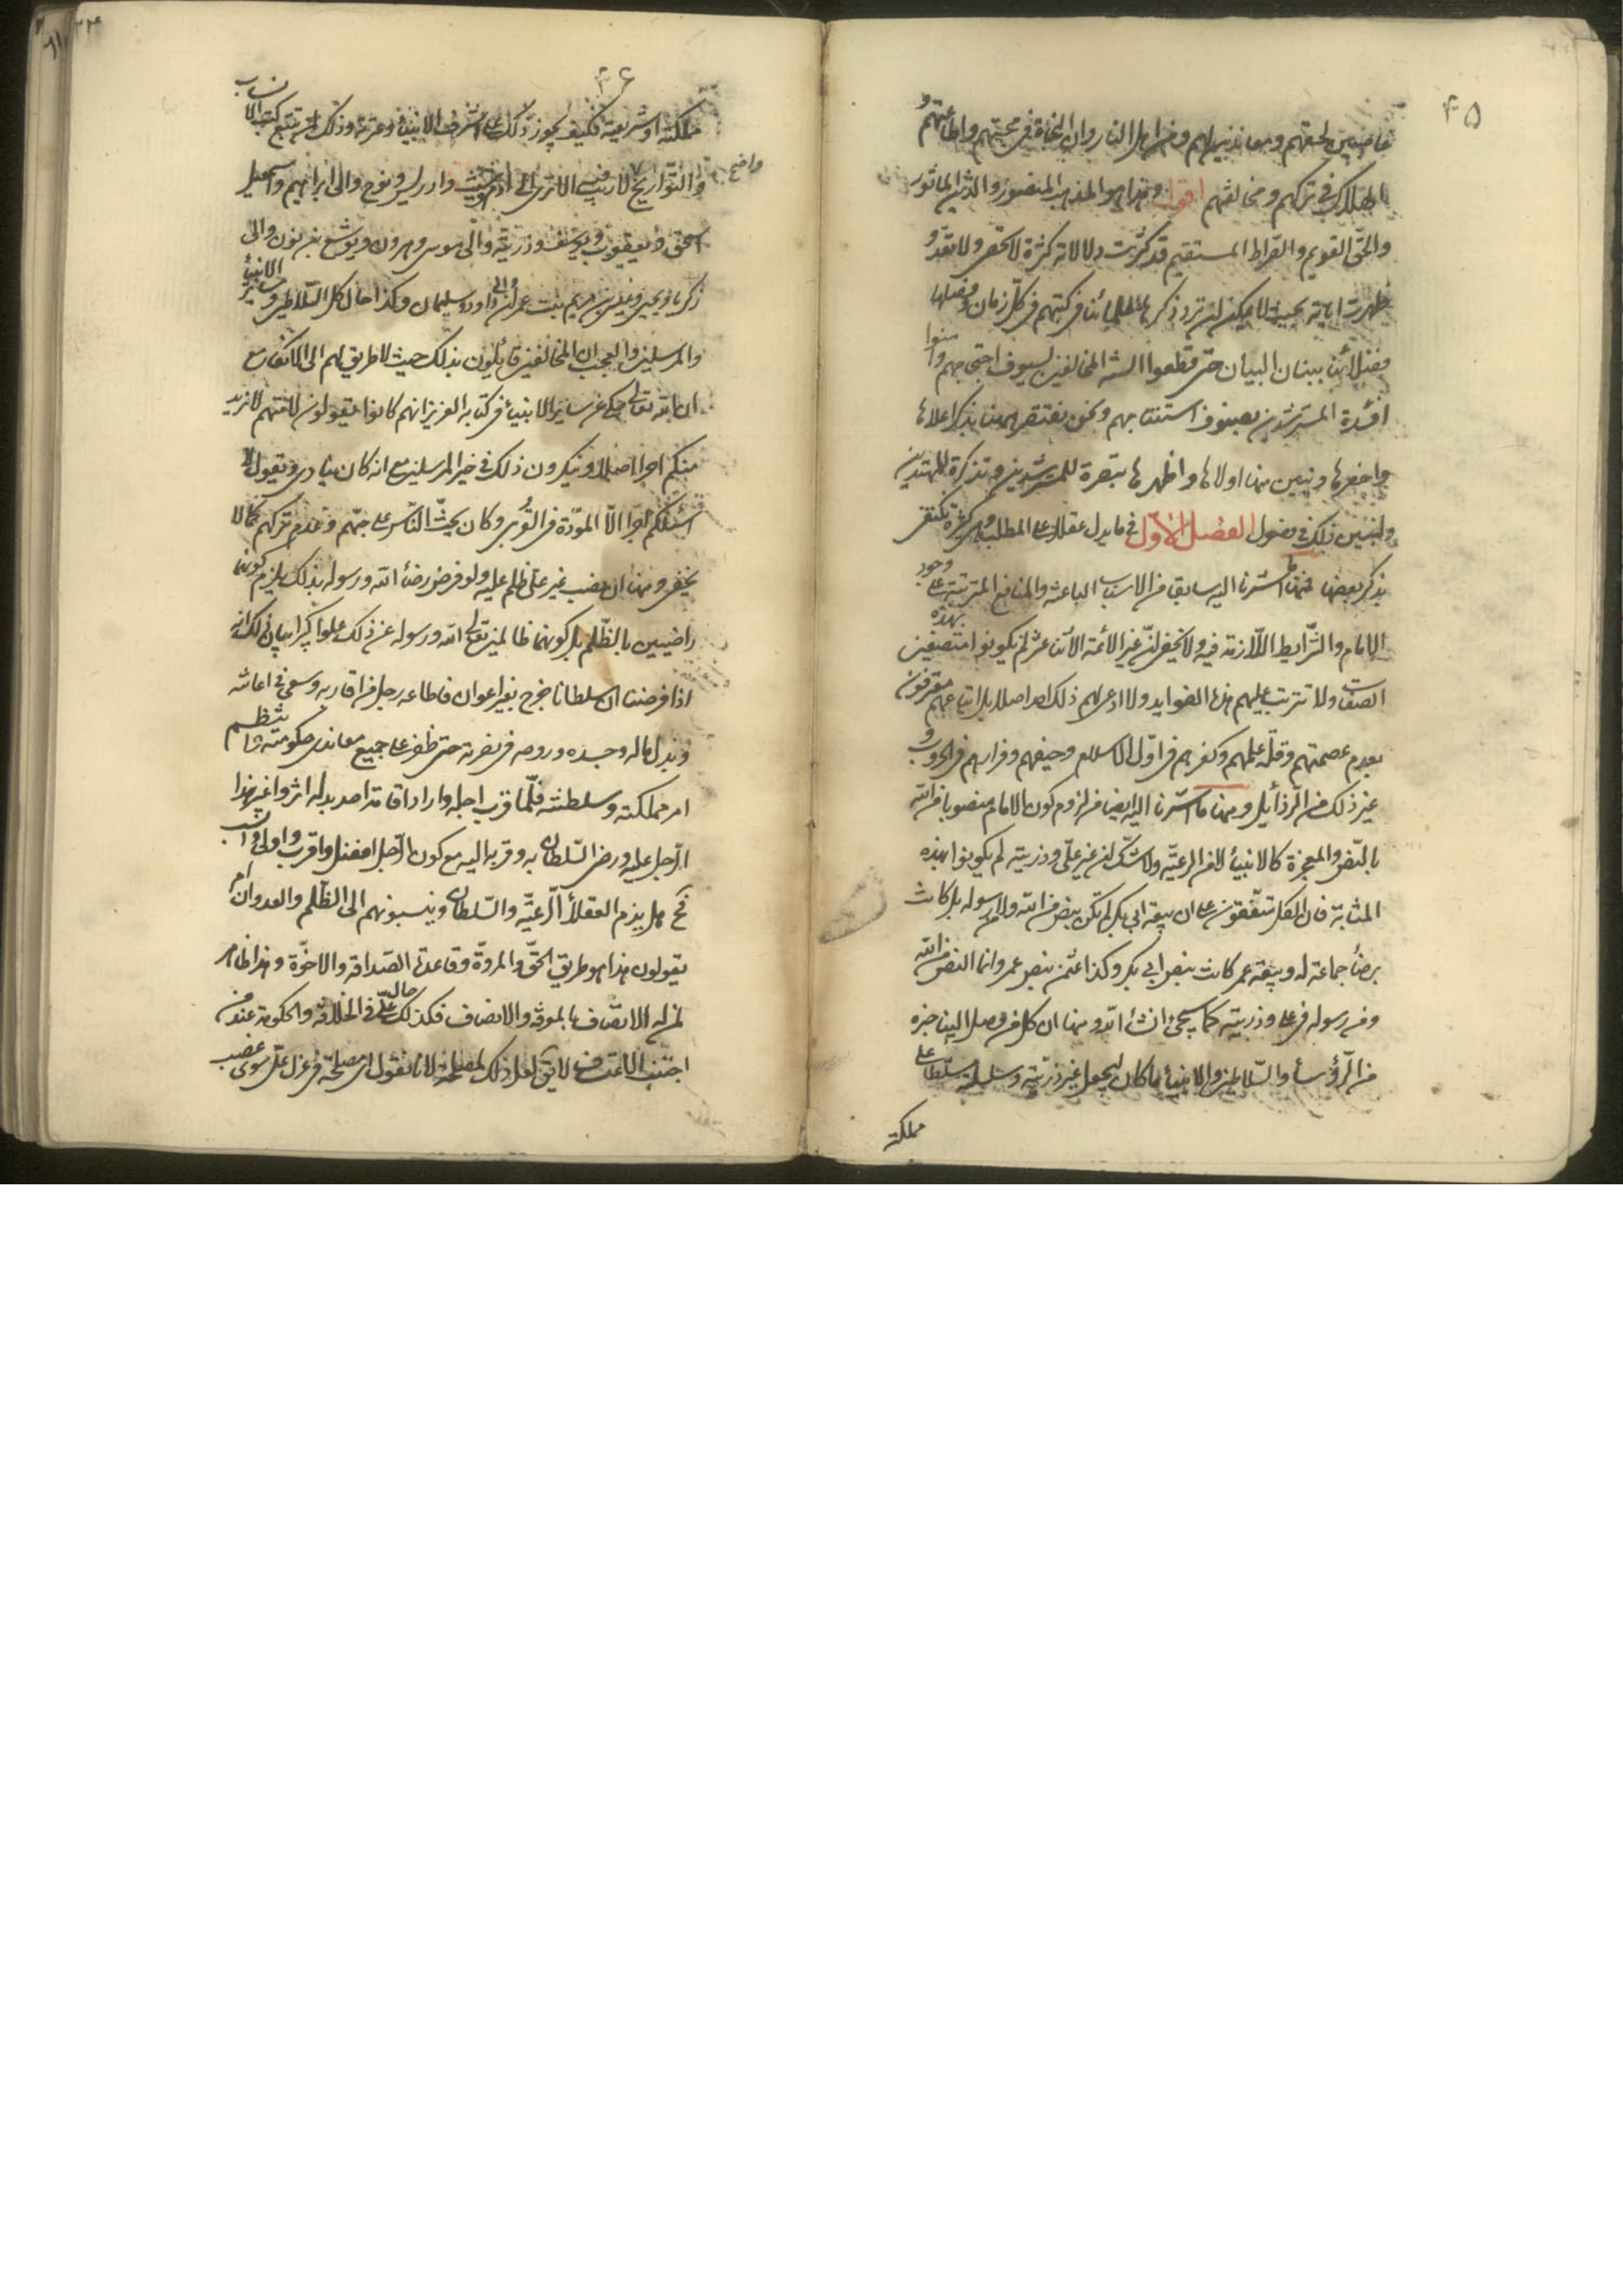 ۴۵
غاصبين لحقهم ومعاندين لهم ومن اهل النار وان النجاة في محبتهم واطاعتهم و
الهلاك في تركهم ومخالفتهم اقول وهذا هو المذهب المنصور والدين الماثور
والحق القويم والصراط المستقيم قد كثرت دلالاته كثرة لا تحصى ولا تعد و
ظهرت اياته بحيث لا يمكن ان ترد ذكرها علمائنا في كتبهم في كل زمان وفصلها
فضلائنا ببنان البيان حتى قطعوا السنة المخالفين بسيوف احتجاجهم وامنوا
افئدة المسترشدين بصنوف بهم ونحن نقتصر ههنا بذكر اعلاها
واخصرها ونبين منها اولاها واظهرها تبصرة للمسترشدين وتذكرة للمهتدين
ولنبين ذلك في فصول الفصل الاول في ما يدل عقلا على المطلب وهي كثيرة نكتفي
بذكر بعضها فمنها ما اشرنا اليه سابقا من الاسباب الباعثة والمنافع المترتبة على وجود
الامام والشرايط اللازمة فيه ولا يخفى ان غير الائمة الاثنا عشر لم يكونوا متصفين بهذه
الصفات ولا تترتب عليهم هذه الفوايد ولا ادعى لهم ذلك احد اصلا بل اتباعهم معترفون
بعدم عصمتهم وقلة علمهم وكفرهم في اول الاسلام وحيفهم وفرارهم في الحروب و
غير ذلك من الرذائل ومنها ما اشرنا اليه ايضا من لزوم كون الامام منصوبا من الله
بالنص والمعجزة كالانبياء لا من الرعية ولا شك ان غير علي وذريته لم يكونوا بهذه
المثابة فان الكل متفقون على ان بيعة ابي بكر لم تكن بنص من الله ولا من رسوله بل كانت
برضاء جماعة له وبيعة عمر كانت بنص ابي بكر وكذا عثمن بنص عمر وانما النص من الله
ومن رسوله في علي وذريته كما سيجيء انشاء الله ومنها ان كل من وصل الينا خبره
من الرؤساء والسلاطين والانبياء ما كان ليجعل غير ذريته وسليلته سلطانا على
مملكته
۴۶
مملكته او شريعته فكيف يجوز ذلك على اشرف الانبياء وعترته وذلك لمن تتبع كتب الانساب
والتواريخ لا ريب فيه الا ترى الى ادم وشيث وادريس ونوح والى ابراهيم واسمعيل
واضح
اسحق ويعقوب ويوسف وذريته والى موسى وهرون ويوشع بن نون والى
زكريا ويحيى وعيسى بن مريم بنت عمران والى داود وسليمان وكذا حال كل السلاطين وساير الانبياء
والمرسلين والعجب ان المخالفين قائلون بذلك حيث لا طريق لهم الى الانكار مع
ان الله تعالى حكى عن ساير الانبياء في كتابه العزيز انهم كانوا يقولون لامتهم لا نريد
منكم اجرا اصلا وينكرون ذلك في خير المرسلين مع انه كان ينادي ويقول لا
اسئلكم اجرا الا المودة في القربى وكان يحث الناس على حبهم وعدم تركهم كما لا
يخفى ومنها ان نصب غير علي ظلم عليه ولو فرض رضاء الله ورسوله بذلك يلزم كونهما
راضيين بالظلم بل كونهما ظالمين تعالى الله ورسوله عن ذلك علوا كبيرا بيان ذلك انه
اذا فرضنا ان سلطانا خرج بغير اعوان فاطاعه رجل من اقاربه وسعى في اعانته
وبذل ماله وجسده وروحه في نصرته حتى ظفر على جميع معاندي حكومته وانتظم
امر مملكته وسلطنته فلما قرب اجله واراد اقامة احد بدله اثر واغير هذا
الرجل عليه ورضى السلطان به وقربه اليه مع كون الرجل افضل واقرب واولى وانسب
فح هل يذم العقلاء الرعية والسلطان وينسبونهم الى الظلم والعدوان ام
يقولون هذا هو طريق الحق والمروة وقاعدة الصداقة والاخوة وهذا ظاهر
لمن له الاتصاف بالمروة والانصاف فكذلك حال علي في الخلافة والحكومة عند من
اجتنب الاعتساف لا يق لعل ذلك لمصلحة لانا نقول اي مصلحة في عزل علي سوى غصب